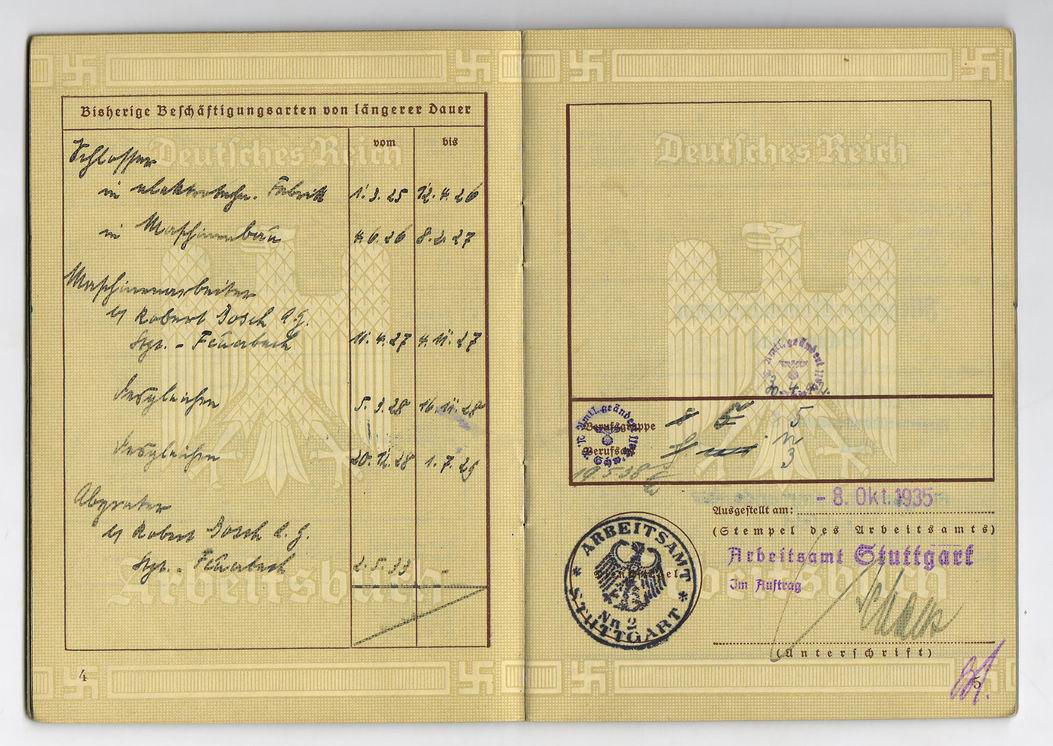 Bisherige Beschäftigungsarten von längerer Dauer
vom bis
Deutsches Reich
Schlosser
in elektrotechn. Fabrik 1.3.25 12.4.26
in Maschinenbau 4.6.26 8.2.27
Maschinenarbeiter
b/ Robert Bosch A.G.
Stgt. - Feuerbach 11.4.27 4.11.27
desgleichen 5.3.28 16.11.28
desgleichen 20.12.28 1.7.29
Abgrater
b/ Robert Bosch A.G.
Stgt. - Feuerbach 2.5.33 -
Arbeitsbuch
4
Deutsches Reich
Amtl. geändert
Amtl. geändert
Berufsgruppe
5
19.5.38
Ausgestellt am: - 8. Okt. 1935
(Stempel des Arbeitsamts)
Arbeitsamt Stuttgart
Im Auftrag
ARBEITSAMT
STUTTGART
No 2
Arbeitsbuch
(Unterschrift)
5